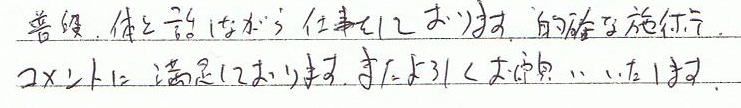 普段、体と話しながら仕事をしております。的確な施術、
コメントに満足しております。またよろしくお願いいたします。